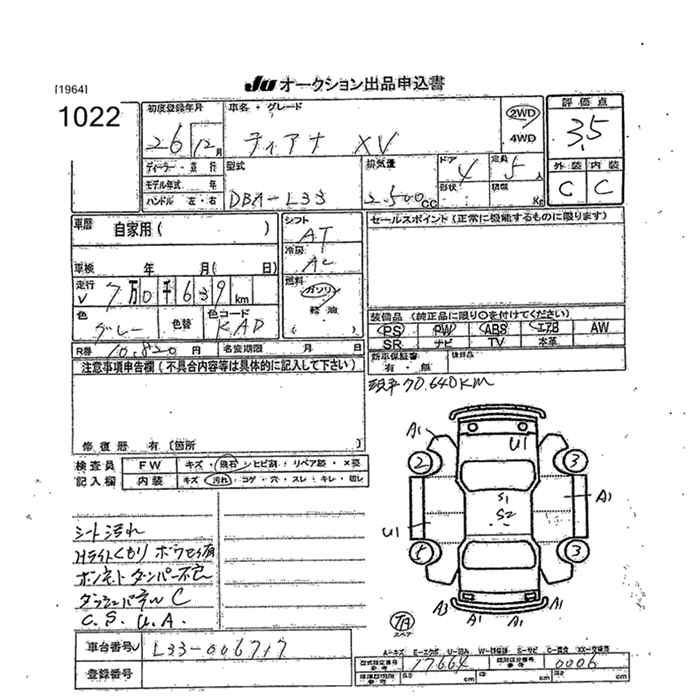 JU オークション出品申込書
[1964]
1022
初度登録年月 車名・グレード 評価点
26 12月 ティアナ XV 2WD 4WD 3.5
ディーラー・並行 型式 排気量 ドア 定員 外装 内装
モデル年式 年 形状 積載
ハンドル 左・右 DBA-L33 2.500cc 4 5人 Kg C C
車暦 自家用( ) シフト セールスポイント(正常に機能するものに限ります)
AT
冷房
AC
車検 年 月( 日)
走行 燃料
7万0千639km ガソリン
軽油
色 色替 色コード 装備品(純正品に限り○を付けてください)
グレー KAD PS PW ABS エアB AW
SR ナビ TV 本革
R券 10,820円 名変期限 月 日 新車保証書 後日品
有・無
注意事項申告欄(不具合内容等は具体的に記入して下さい)
現車70.640KM
修復歴 有[箇所 ]
検査員 FW キズ・飛石・シヒビ割・リペア跡・×要
記入欄 内装 キズ・汚れ・コゲ・穴・スレ・キレ・切レ
シート汚れ
Hライトくもり
ボンネットダンパー不良
ダッシュパネルC
C.S.U.A.
A1 U1
2 3
S1
S2
A1
U1
5 3
A3 A1 A1
スペア
A-キズ E-エクボ U-凹み W-補修跡 S-サビ C-腐食 XX-交換済
車台番号 L33-006717
型式指定番号 17664 類別区分番号 0006
登録番号
cm cm cm